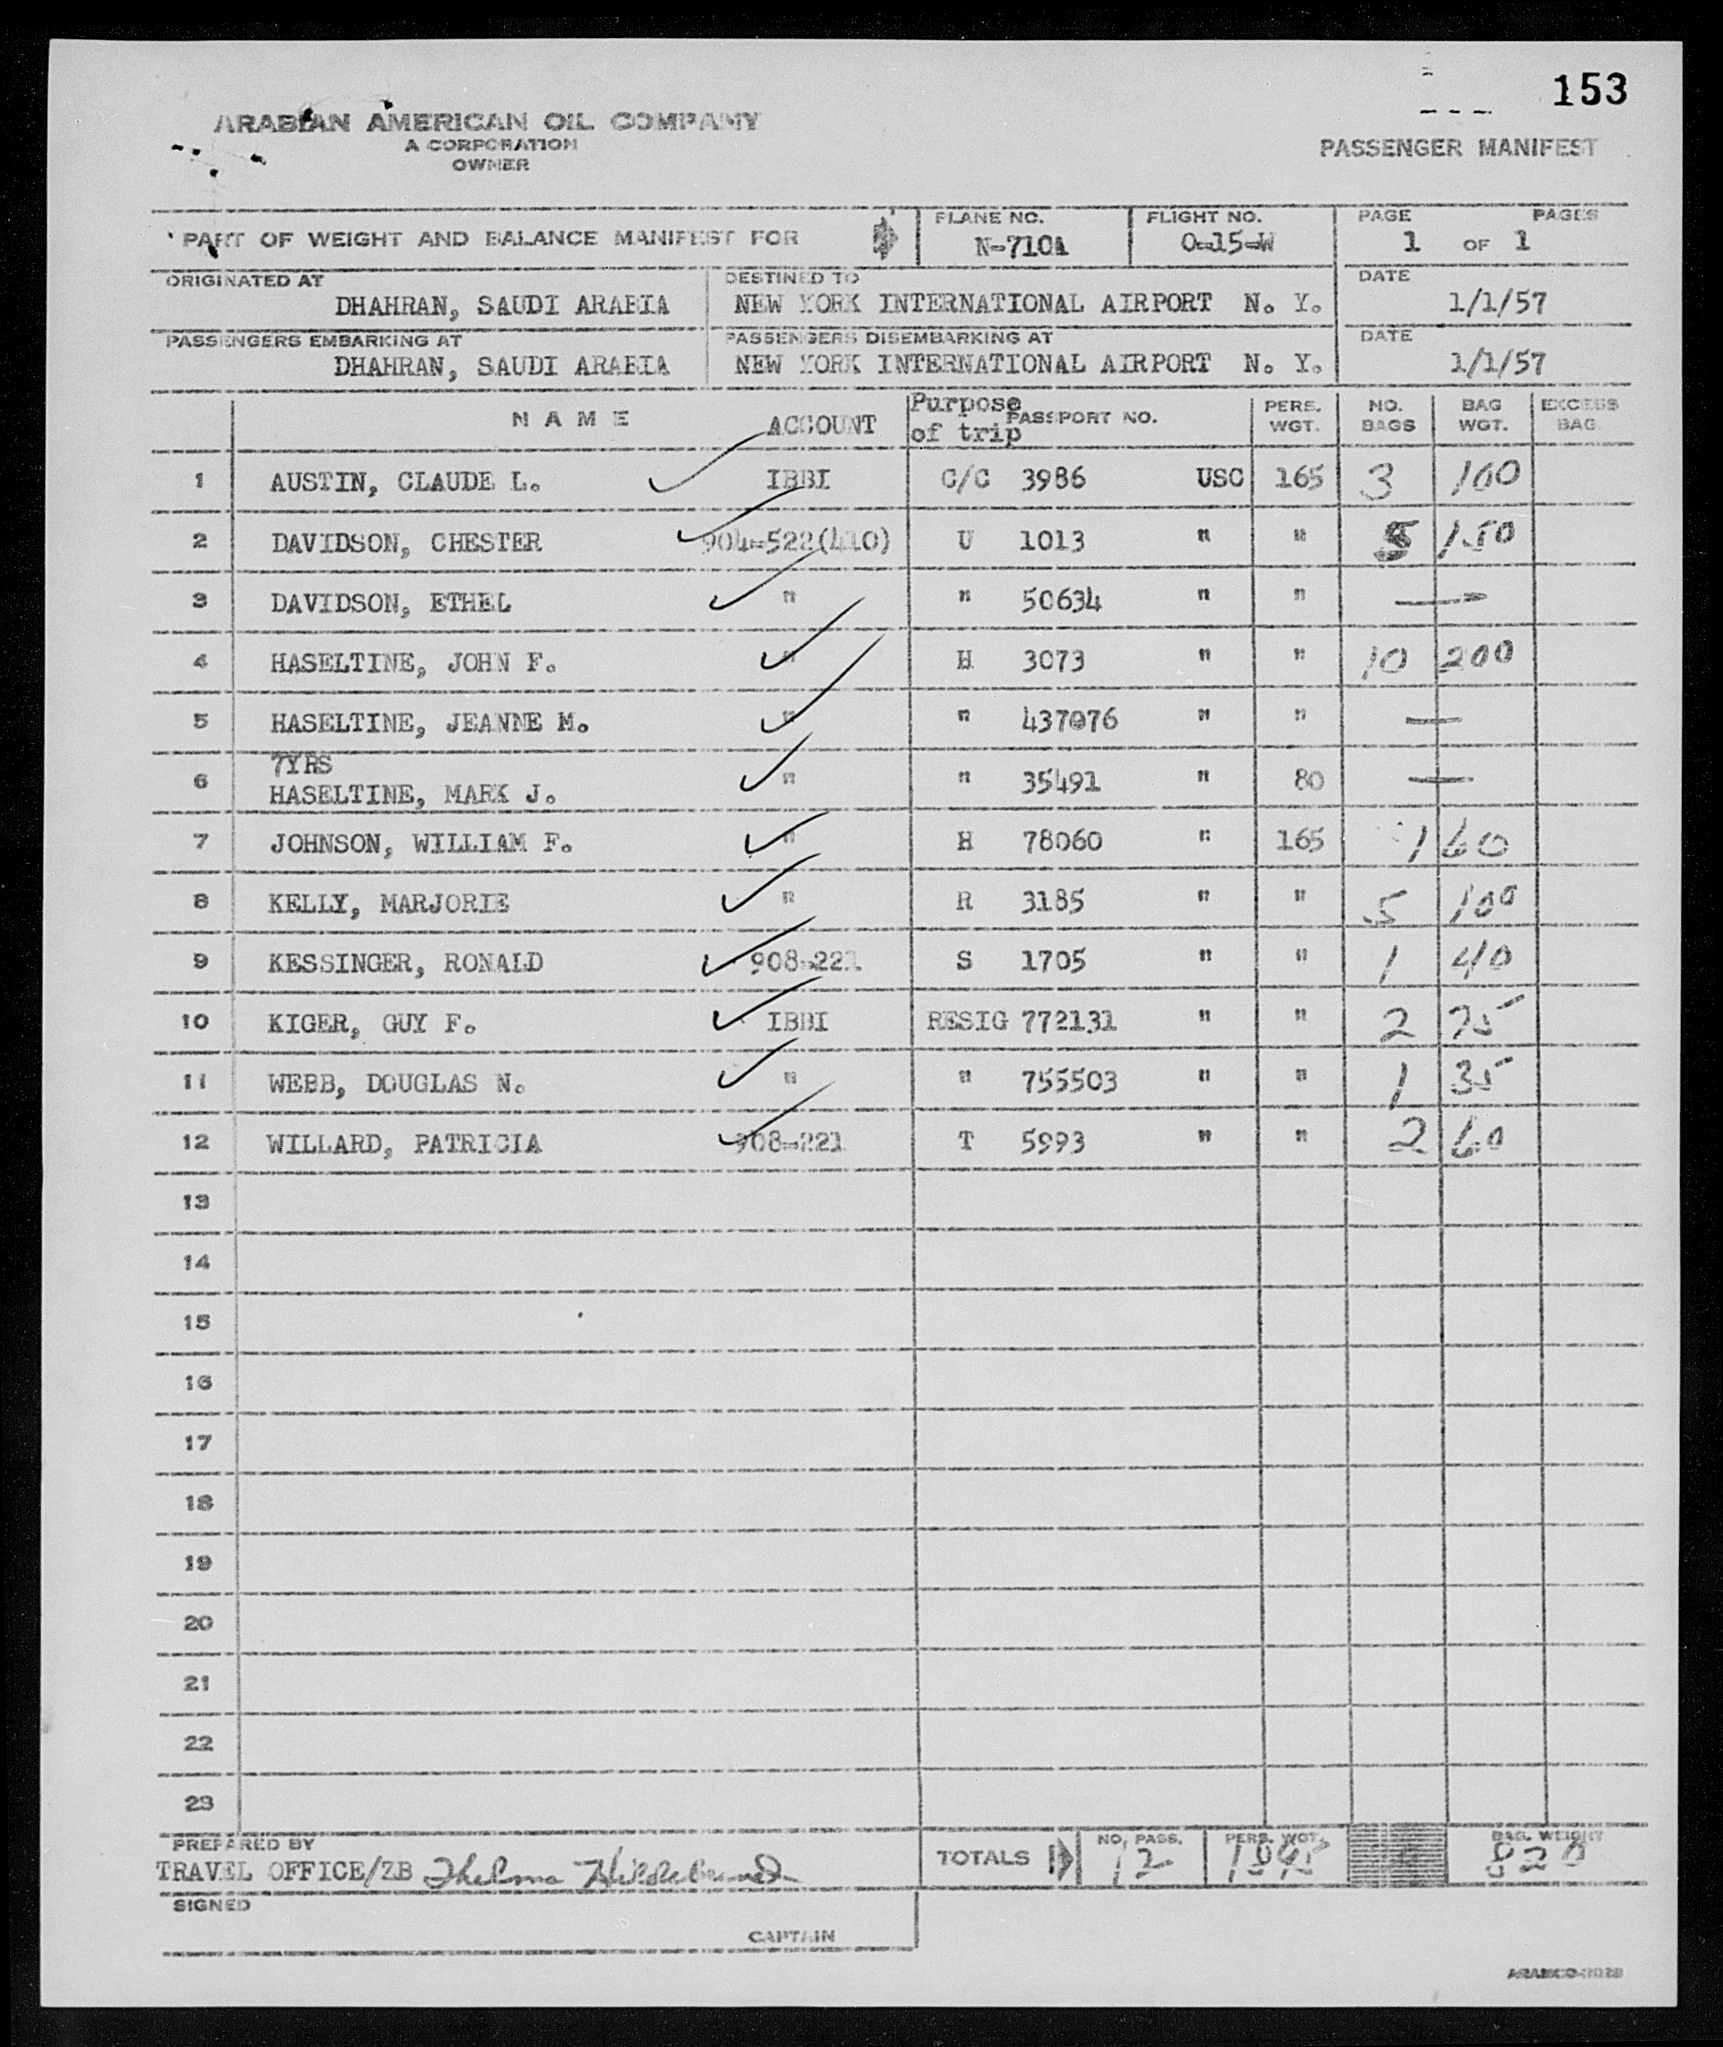 153
ARABIAN AMERICAN OIL COMPANY
A CORPORATION
OWNER
PASSENGER MANIFEST
PART OF WEIGHT AND BALANCE MANIFEST FOR
PLANE NO. N-710A
FLIGHT NO. O-15-W
PAGE 1 OF 1 PAGES
ORIGINATED AT DHAHRAN, SAUDI ARABIA
DESTINED TO NEW YORK INTERNATIONAL AIRPORT N. Y.
DATE 1/1/57
PASSENGERS EMBARKING AT DHAHRAN, SAUDI ARABIA
PASSENGERS DISEMBARKING AT NEW YORK INTERNATIONAL AIRPORT N. Y.
DATE 1/1/57
NAME ACCOUNT Purpose of trip PASSPORT NO. PERS. WGT. NO. BAGS BAG WGT. EXCESS BAG.
1 AUSTIN, CLAUDE L. IBBI C/C 3986 USC 165 3 100
2 DAVIDSON, CHESTER 904-522(410) U 1013 " " 5 150
3 DAVIDSON, ETHEL " " 50634 " " —
4 HASELTINE, JOHN F. " H 3073 " " 10 200
5 HASELTINE, JEANNE M. " " 437076 " " —
7YRS
6 HASELTINE, MARK J. " " 35491 " 80 —
7 JOHNSON, WILLIAM F. " H 78060 " 165 1 60
8 KELLY, MARJORIE " R 3185 " " 5 100
9 KESSINGER, RONALD 908-221 S 1705 " " 1 40
10 KIGER, GUY F. IBBI RESIG 772131 " " 2 75
11 WEBB, DOUGLAS N. " " 755503 " " 1 35
12 WILLARD, PATRICIA 908-221 T 5993 " " 2 60
13
14
15
16
17
18
19
20
21
22
23
PREPARED BY
TRAVEL OFFICE/ZB Thelma Hildebrandt
TOTALS NO. PASS. 12 PERS. WGT. BAG. WEIGHT 820
SIGNED
CAPTAIN